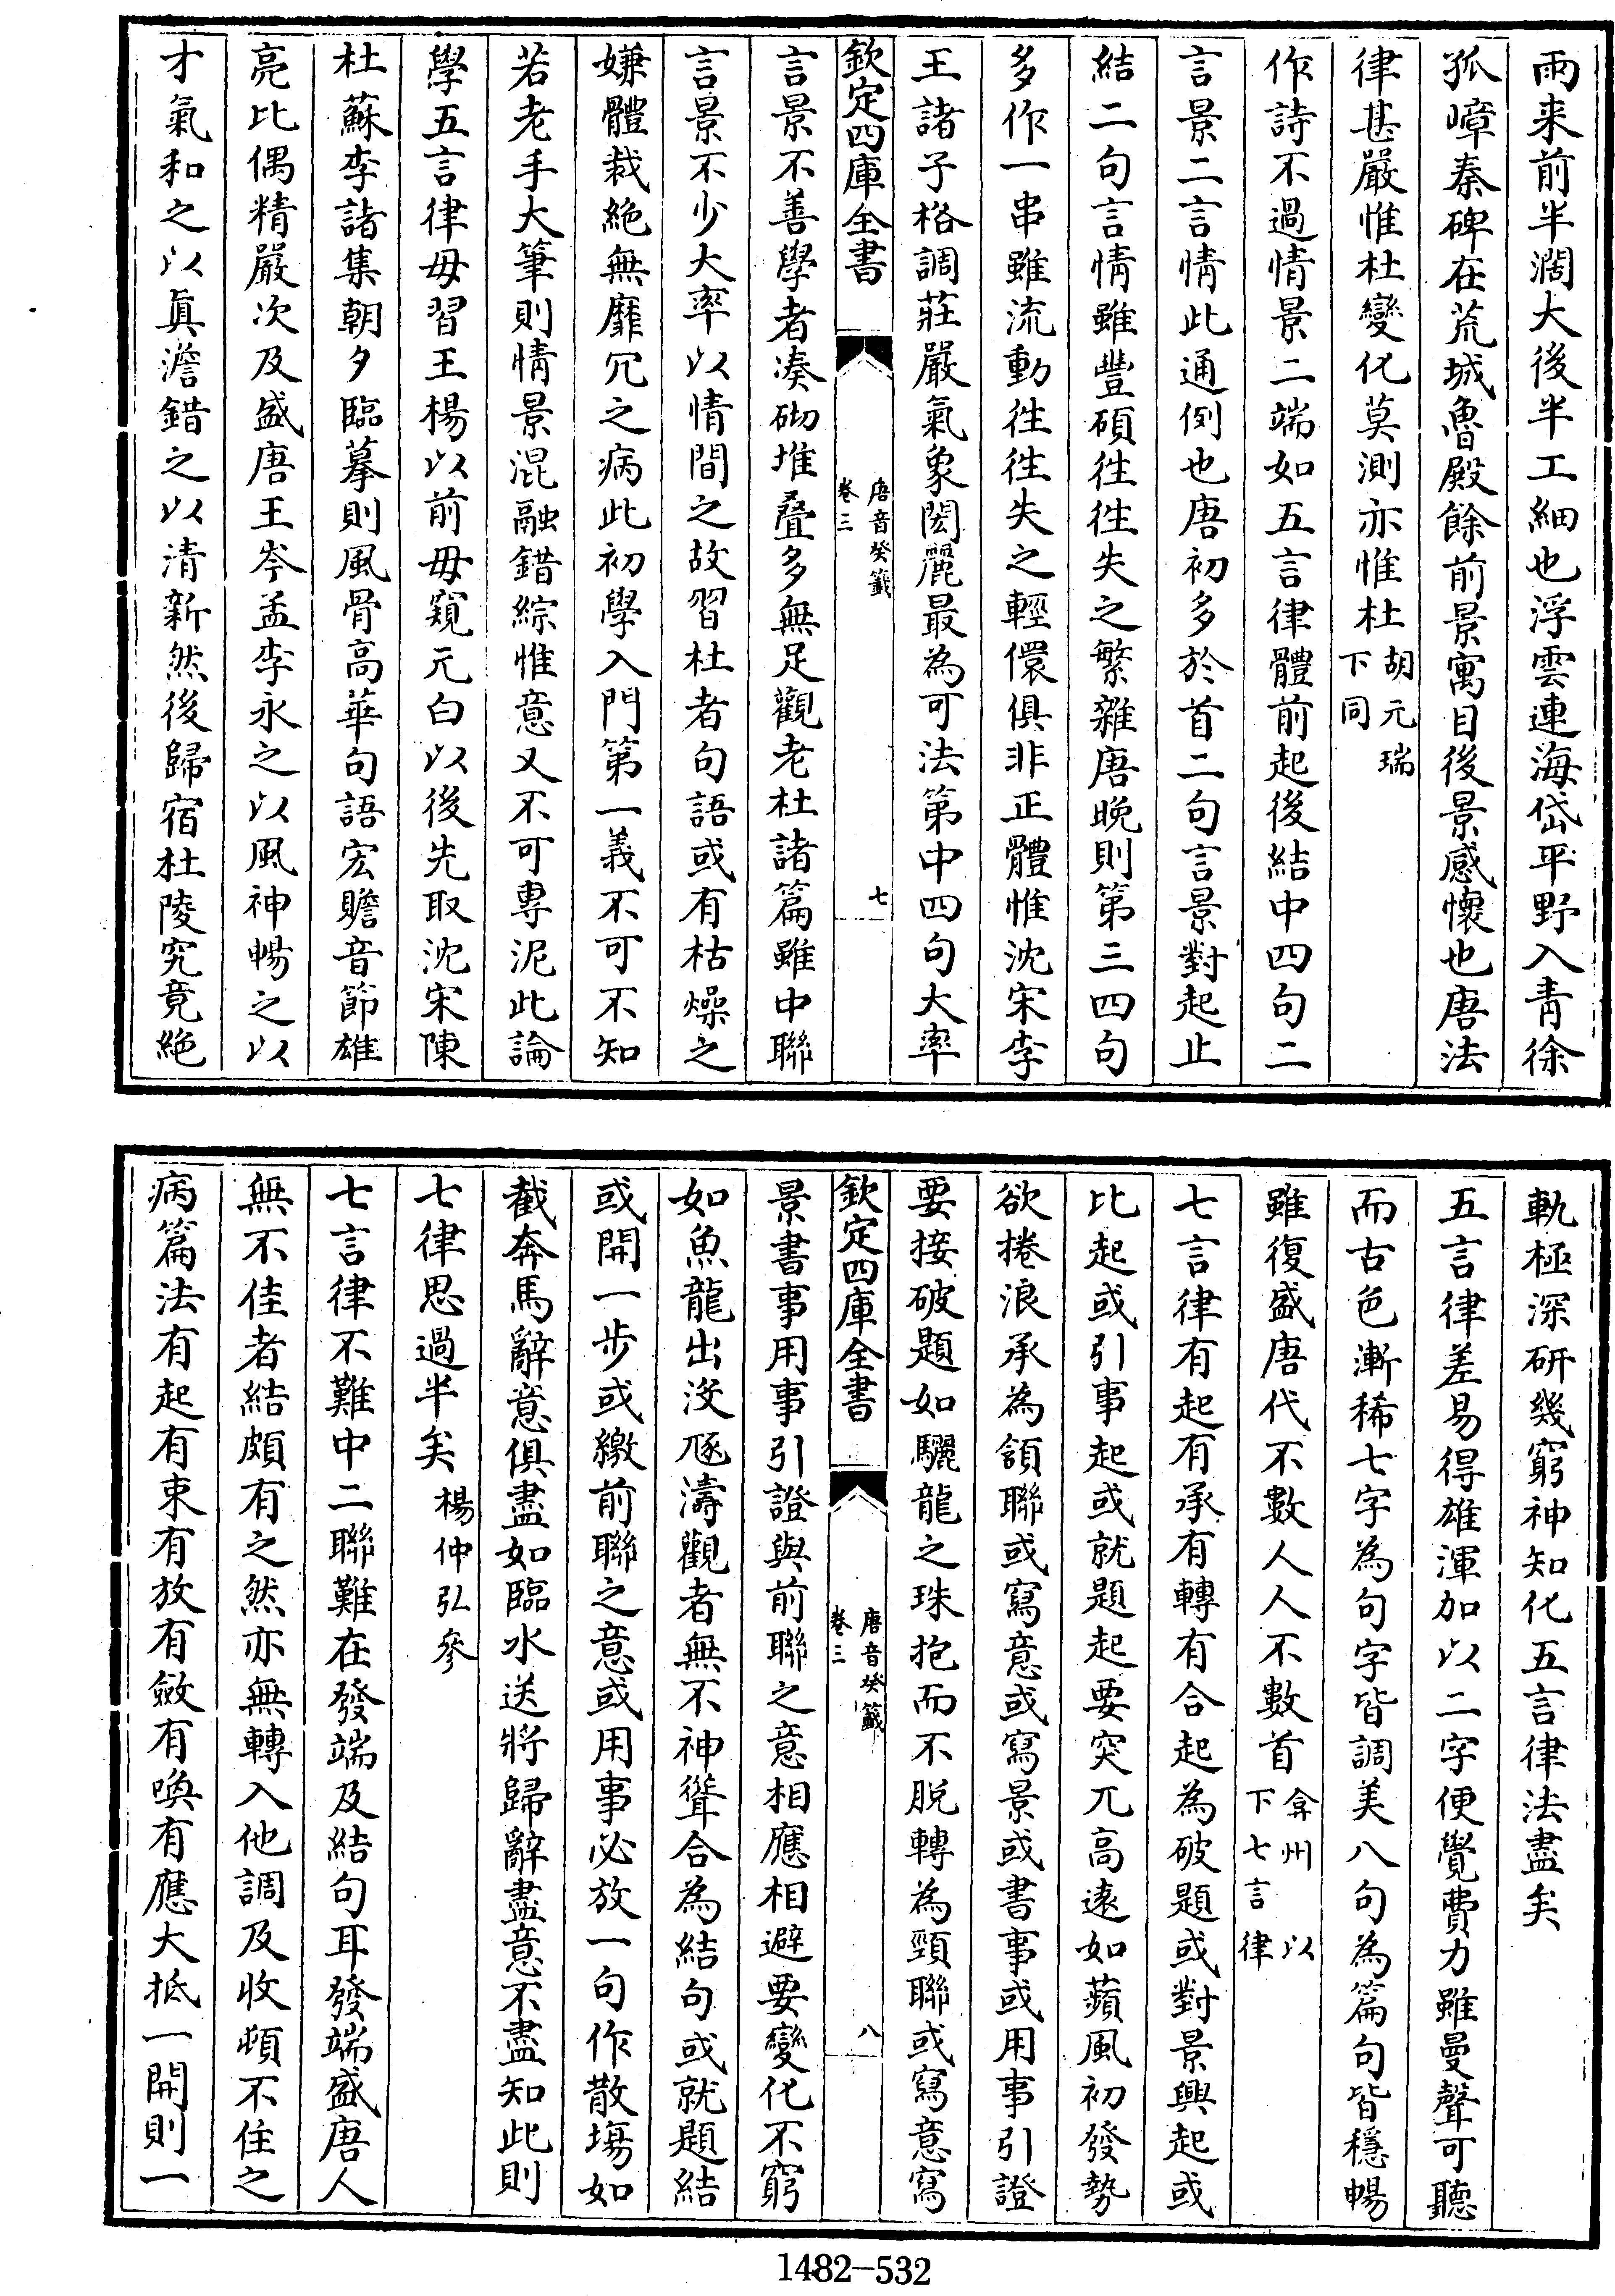 雨来前半濶大後半工細也浮雲連海岱平野入青徐
孤嶂秦碑在荒城魯殿餘前景寓目後景感懷也唐法
律甚嚴惟杜變化莫測亦惟杜胡元瑞下同
作詩不過情景二端如五言律體前起後結中四句二
言景二言情此通例也唐初多於首二句言景對起止
結二句言情雖豐碩徃徃失之繁雜唐晚則第三四句
多作一串雖流動徃徃失之輕儇俱非正體惟沈宋李
王諸子格調莊嚴氣象閎麗最為可法第中四句大率
欽定四庫全書
唐音癸籤
卷三
七
言景不善學者凑砌堆疊多無足觀老杜諸篇雖中聯
言景不少大率以情間之故習杜者句語或有枯燥之
嫌體裁絶無靡冗之病此初學入門第一義不可不知
若老手大筆則情景混融錯綜惟意又不可專泥此論
學五言律毋習王楊以前毋窺元白以後先取沈宋陳
杜蘇李諸集朝夕臨摹則風骨高華句語宏贍音節雄
亮比偶精嚴次及盛唐王岑孟李永之以風神暢之以
才氣和之以真澹錯之以清新然後歸宿杜陵究竟絶
軌極深研幾窮神知化五言律法盡矣
五言律差易得雄渾加以二字便覺費力雖曼聲可聽
而古色漸稀七字為句字皆調美八句為篇句皆穩暢
雖復盛唐代不數人人不數首弇州以下七言律
七言律有起有承有轉有合起為破題或對景興起或
比起或引事起或就題起要突兀高逺如蘋風初發勢
欲捲浪承為頷聯或寫意或寫景或書事或用事引證
要接破題如驪龍之珠抱而不脱轉為頸聯或寫意寫
欽定四庫全書
唐音癸籤
卷三
八
景書事用事引證與前聯之意相應相避要變化不窮
如魚龍出沒豗濤觀者無不神聳合為結句或就題結
或開一步或繳前聯之意或用事必放一句作散塲如
截奔馬辭意俱盡如臨水送將歸辭盡意不盡知此則
七律思過半矣楊仲弘參
七言律不難中二聯難在發端及結句耳發端盛唐人
無不佳者結頗有之然亦無轉入他調及收頓不住之
病篇法有起有束有放有斂有喚有應大抵一開則一
1482-532